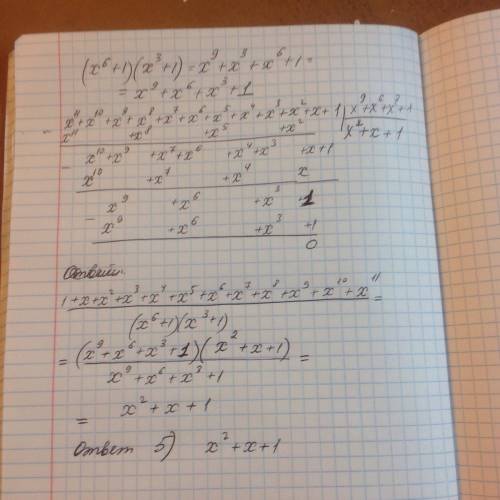 (x⁶+1)(x³+1) = x⁹+x³+x⁶+1 =
= x⁹+x⁶+x³+1
x¹¹+x¹⁰+x⁹+x⁸+x⁷+x⁶+x⁵+x⁴+x³+x²+x+1 | x⁹+x⁶+x³+1
- x¹¹ +x⁸ +x⁵ +x² | x²+x+1
- x¹⁰+x⁹ +x⁷+x⁶ +x⁴+x³ +x+1
x¹⁰ +x⁷ +x⁴ x
- x⁹ +x⁶ +x³ +1
x⁹ +x⁶ +x³ +1
0
Ответ:
1+x+x²+x³+x⁴+x⁵+x⁶+x⁷+x⁸+x⁹+x¹⁰+x¹¹ =
(x⁶+1)(x³+1)
= (x⁹+x⁶+x³+1)(x²+x+1) =
x⁹+x⁶+x³+1
= x²+x+1
Ответ 5) x²+x+1